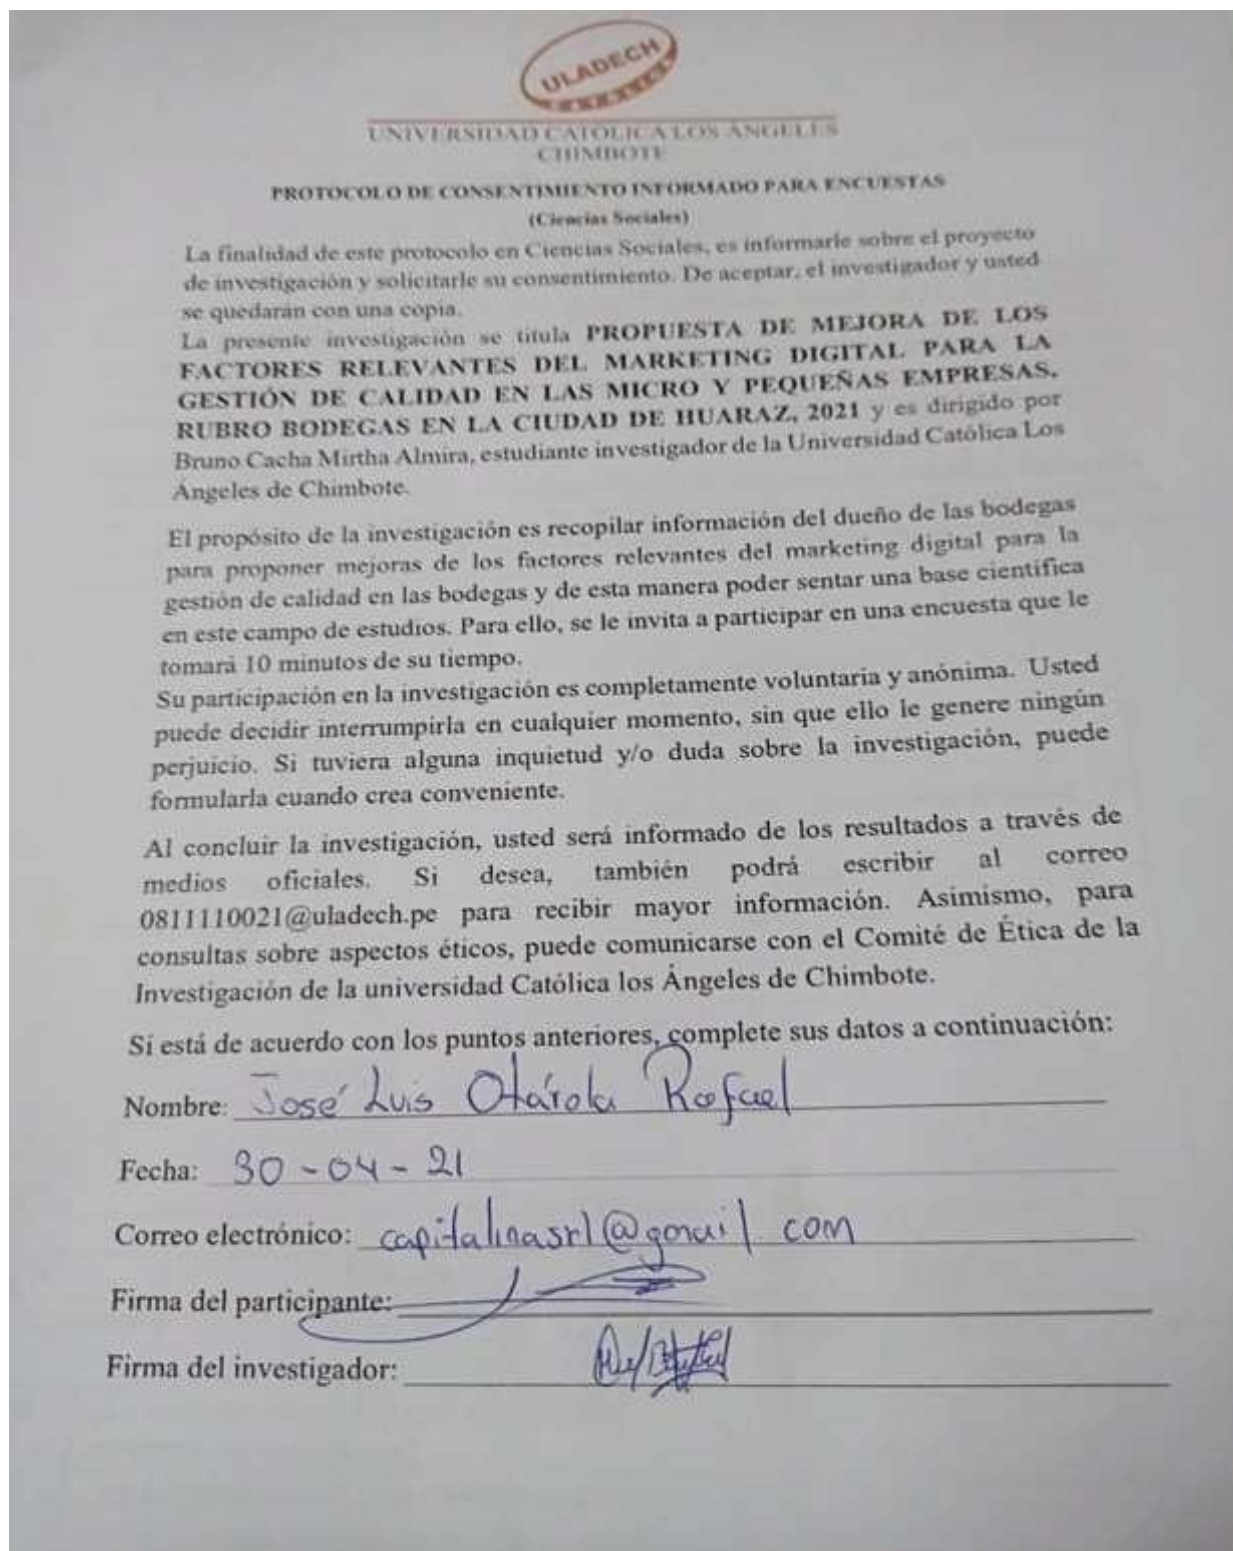 ULADECH
UNIVERSIDAD CATÓLICA LOS ÁNGELES
CHIMBOTE
PROTOCOLO DE CONSENTIMIENTO INFORMADO PARA ENCUESTAS
(Ciencias Sociales)
La finalidad de este protocolo en Ciencias Sociales, es informarle sobre el proyecto
de investigación y solicitarle su consentimiento. De aceptar, el investigador y usted
se quedarán con una copia.
La presente investigación se titula PROPUESTA DE MEJORA DE LOS
FACTORES RELEVANTES DEL MARKETING DIGITAL PARA LA
GESTIÓN DE CALIDAD EN LAS MICRO Y PEQUEÑAS EMPRESAS,
RUBRO BODEGAS EN LA CIUDAD DE HUARAZ, 2021 y es dirigido por
Bruno Cacha Mirtha Almira, estudiante investigador de la Universidad Católica Los
Ángeles de Chimbote.
El propósito de la investigación es recopilar información del dueño de las bodegas
para proponer mejoras de los factores relevantes del marketing digital para la
gestión de calidad en las bodegas y de esta manera poder sentar una base científica
en este campo de estudios. Para ello, se le invita a participar en una encuesta que le
tomará 10 minutos de su tiempo.
Su participación en la investigación es completamente voluntaria y anónima. Usted
puede decidir interrumpirla en cualquier momento, sin que ello le genere ningún
perjuicio. Si tuviera alguna inquietud y/o duda sobre la investigación, puede
formularla cuando crea conveniente.
Al concluir la investigación, usted será informado de los resultados a través de
medios oficiales. Si desea, también podrá escribir al correo
0811110021@uladech.pe para recibir mayor información. Asimismo, para
consultas sobre aspectos éticos, puede comunicarse con el Comité de Ética de la
Investigación de la universidad Católica los Ángeles de Chimbote.
Si está de acuerdo con los puntos anteriores, complete sus datos a continuación:
Nombre: José Luis Otárola Rafael
Fecha: 30-04-21
Correo electrónico: capitalinasrl@gmail.com
Firma del participante:
Firma del investigador: